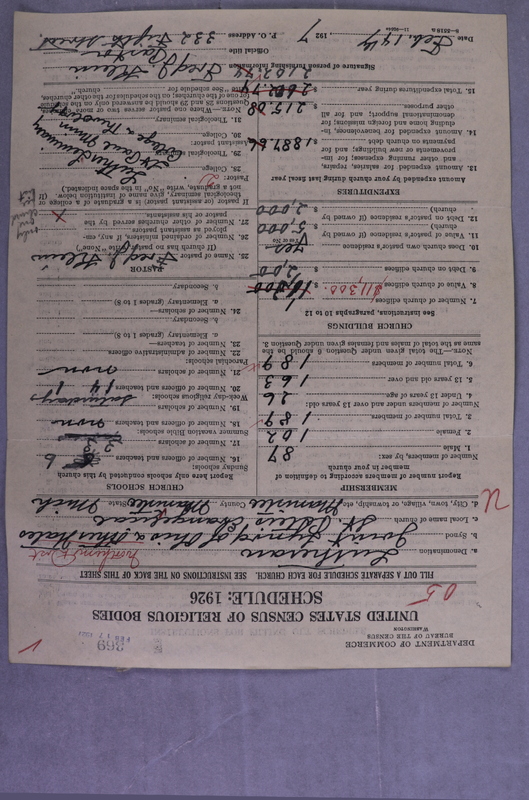 DEPARTMENT OF COMMERCE
BUREAU OF THE CENSUS
WASHINGTON
369
FEB 17 1927
UNITED STATES CENSUS OF RELIGIOUS BODIES
SCHEDULE: 1926
05
FILL OUT A SEPARATE SCHEDULE FOR EACH CHURCH. SEE INSTRUCTIONS ON THE BACK OF THIS SHEET
a. Denomination Lutheran Northern Dist
b. Synod Joint Synod of Ohio & Other States
c. Local name of church St. Paul's Evangelical
d. City, town, village, or township, etc. Manistee County Manistee State Mich
MEMBERSHIP
Report number of members according to definition of
member in your church
Number of members, by sex:
1. Male 87
2. Female 102
3. Total number of members 189
Number of members under and over 13 years old:
4. Under 13 years of age 26
5. 13 years old and over 163
6. Total number of members 189
NOTE.—The total given under Question 6 should be the
same as the total of males and females given under Question 3.
CHURCH BUILDINGS
See instructions, paragraphs 10 to 12
7. Number of church edifices 1
8. Value of church edifices $ $11,300
9. Debt on church edifices $ 2,00
10. Does church own pastor's residence Yes
(Yes or No)
11. Value of pastor's residence (if owned by
church) $ 5,000
12. Debt on pastor's residence (if owned by
church) $ 2,000
EXPENDITURES
Amount expended by your church during last fiscal year
13. Amount expended for salaries, repairs,
and other running expenses; for im-
provements or new buildings; and for
payments on church debt $ 1887.66
14. Amount expended for benevolences, in-
cluding home and foreign missions; for
denominational support; and for all
other purposes $ 215.08
15. Total expenditures during year $ 2102.74
CHURCH SCHOOLS
Report here only schools conducted by this church
Sunday schools:
16. Number of officers and teachers 6
17. Number of scholars
Summer vacation Bible schools:
18. Number of officers and teachers non
19. Number of scholars
Week-day religious schools: Saturdays
20. Number of officers and teachers 1
21. Number of scholars 14
Parochial schools: non
22. Number of administrative officers
23. Number of teachers—
a. Elementary (grades 1 to 8)
b. Secondary
24. Number of scholars—
a. Elementary (grades 1 to 8)
b. Secondary
PASTOR
25. Name of pastor Fred J. Klein
(If church has no pastor, write "None")
26. Number of ordained ministers, if any, em-
ployed as assistant pastor
27. Number of other churches served by the
pastor or his assistants
If pastor (or assistant pastor) is a graduate of a college or
theological seminary, give name of institution below. (If
not a graduate, write "No" in the space indicated.)
Pastor:
28. College
29. Theological seminary Luther Seminary
Assistant pastor: St Paul Minn
30. College
31. Theological seminary
NOTE.—Where one pastor serves two or more churches,
Questions 28 and 29 should be answered only on the schedule
for one of the churches; on the schedules for the other churches,
write "See schedule for church."
Signature of person furnishing information Fred J. Klein
Official title Pastor
P. O. Address 332 Fifth Street
Date Feb. 14th, 1927